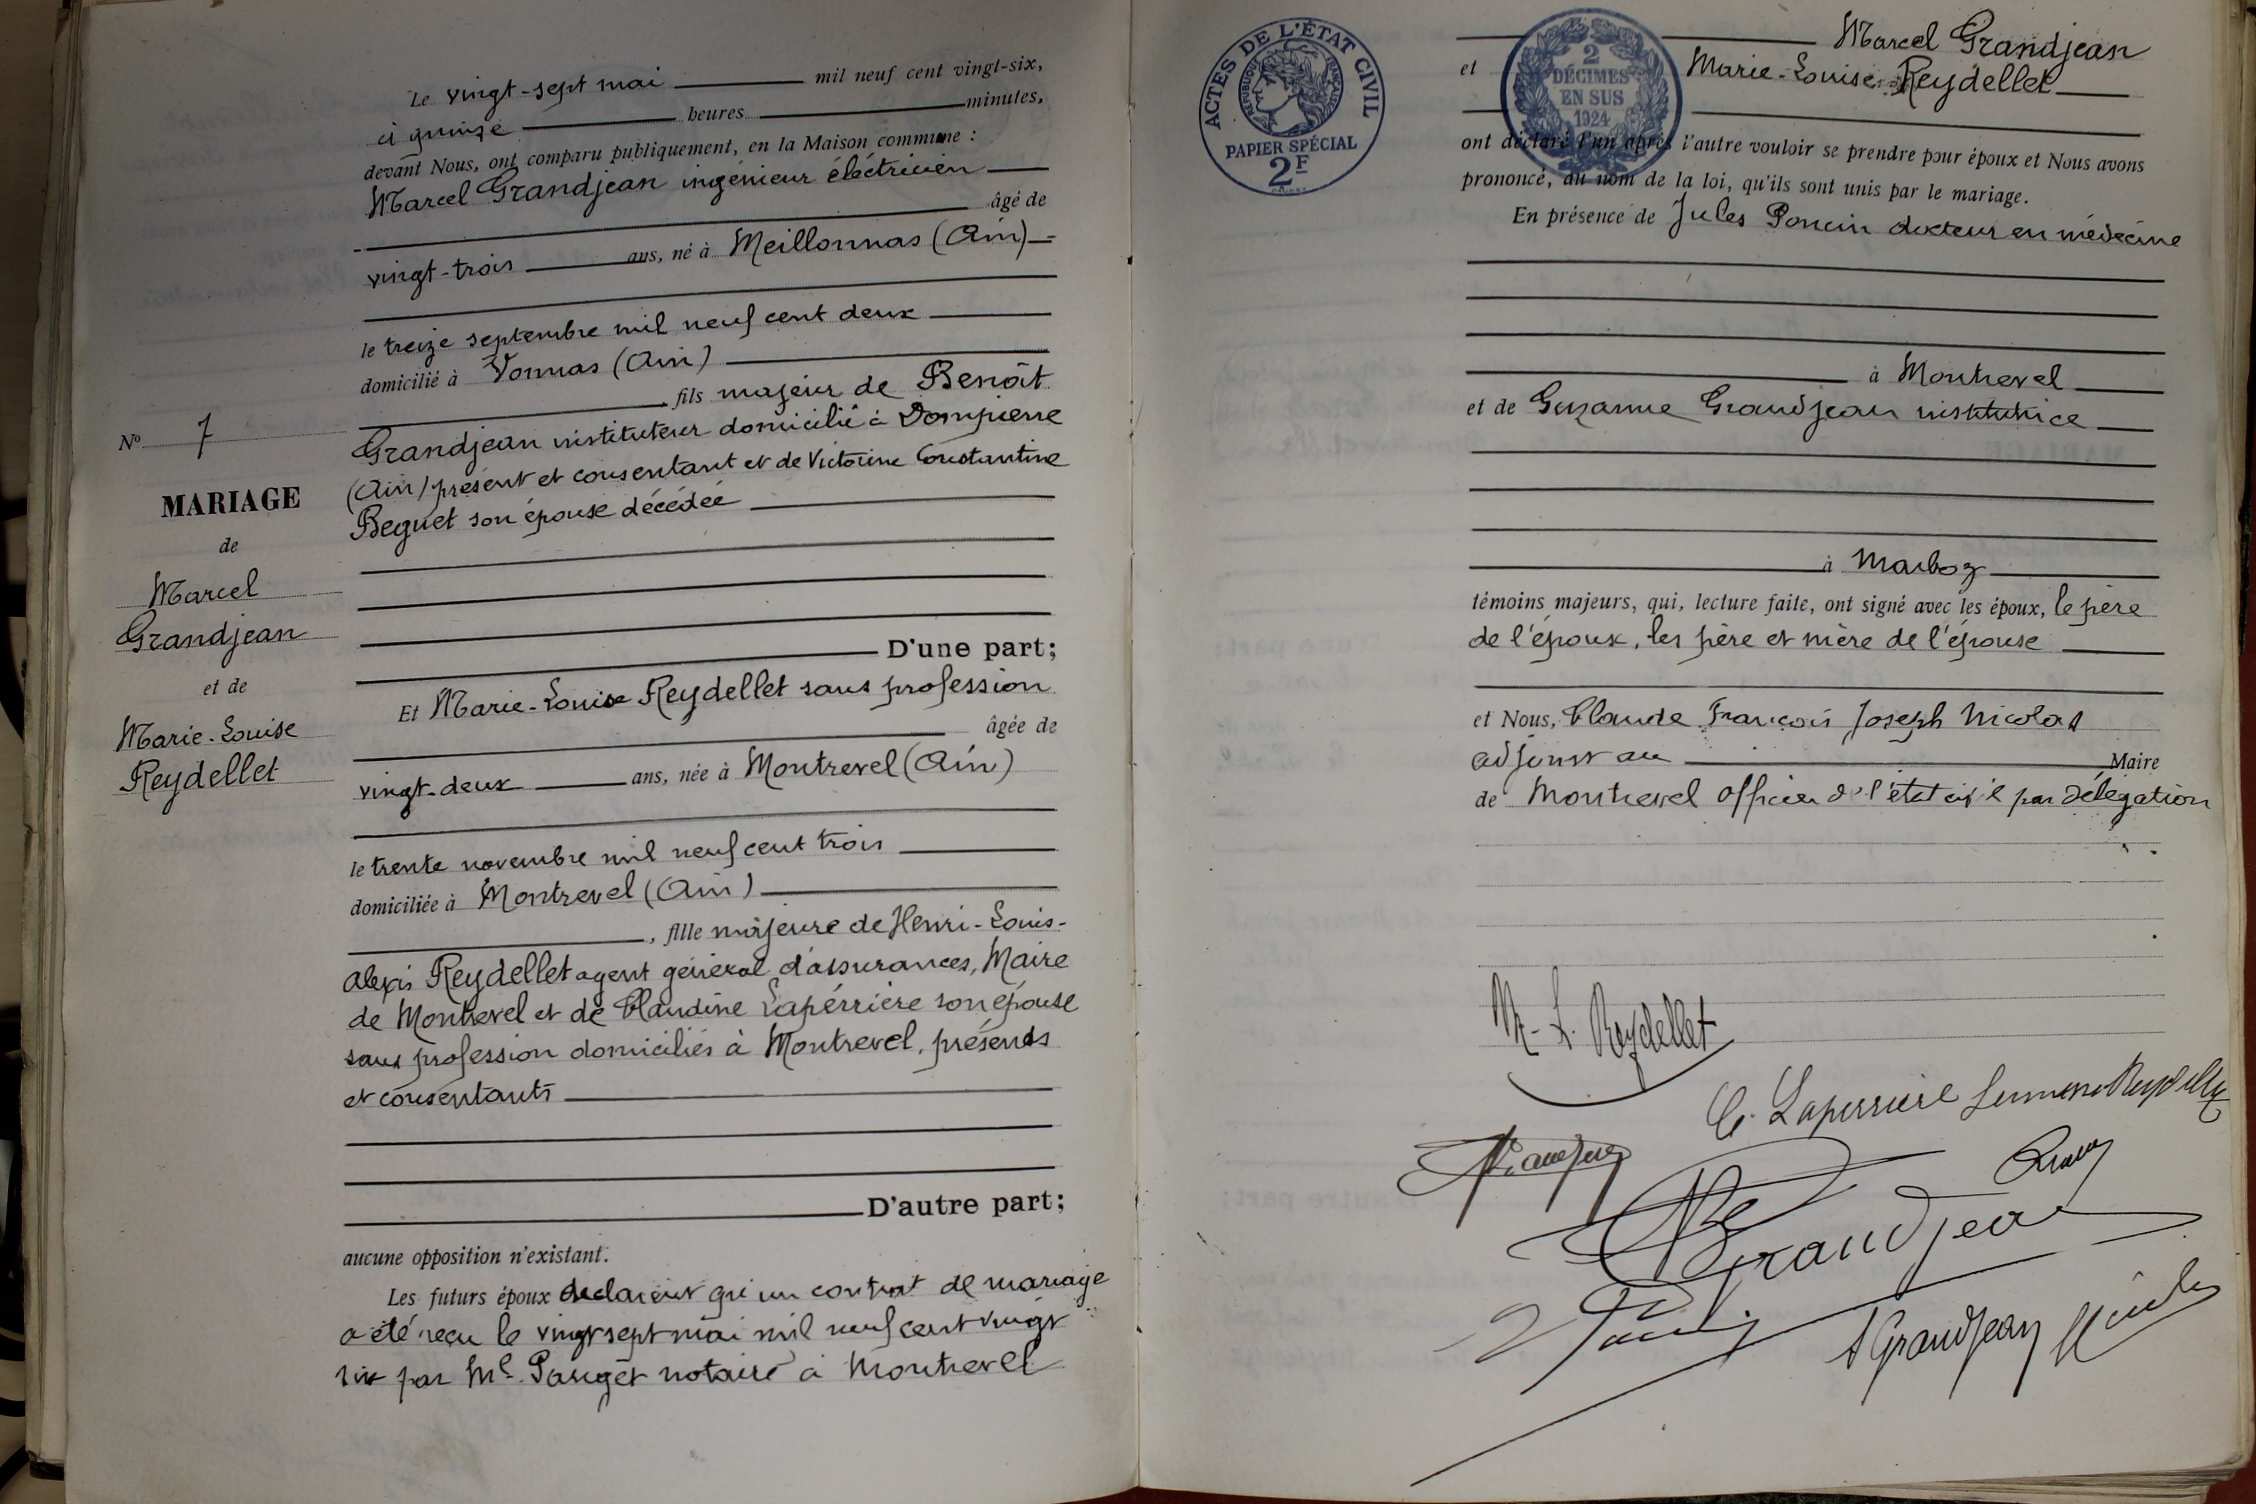 Le vingt-sept mai mil neuf cent vingt-six,
à quinze heures minutes,
devant Nous, ont comparu publiquement, en la Maison commune :
Marcel Grandjean ingénieur éléctricien
âgé de
vingt-trois ans, né à Meillonnas (Ain)
le treize septembre mil neuf cent deux
domicilié à Vonnas (Ain)
fils majeur de Benoît
Grandjean instituteur domicilié à Dompierre
(Ain) présent et consentant et de Victorine Constantine
Beguet son épouse décédée
D'une part;
Et Marie-Louise Reydellet sans profession
âgée de
vingt-deux ans, née à Montrevel (Ain)
le trente novembre mil neuf cent trois
domiciliée à Montrevel (Ain)
, fille majeure de Henri-Louis-
Alexis Reydellet agent général d'assurances, Maire
de Montrevel et de Claudine Lapérrière son épouse
sans profession domiciliés à Montrevel, présents
et consentants
D'autre part;
aucune opposition n'existant.
Les futurs époux declarent qu'un contrat de mariage
a été reçu le vingt sept mai mil neuf cent vingt
six par Me Pauget notaire à Montrevel
No 7
MARIAGE
de
Marcel
Grandjean
et de
Marie-Louise
Reydellet
ACTES DE L'ÉTAT CIVIL
RÉPUBLIQUE FRANÇAISE
PAPIER SPÉCIAL
2F
2
DÉCIMES
EN SUS
1924
Marcel Grandjean
et Marie-Louise Reydellet
ont déclaré l'un après l'autre vouloir se prendre pour époux et Nous avons
prononcé, au nom de la loi, qu'ils sont unis par le mariage.
En présence de Jules Poncin docteur en médecine
à Montrevel
et de Suzanne Grandjean institutrice
à Marboz
témoins majeurs, qui, lecture faite, ont signé avec les époux, le père
de l'époux, les père et mère de l'épouse
et Nous, Claude François Joseph Nicolas
adjoint au Maire
de Montrevel officier de l'état civil par délégation
M-L. Reydellet
C. Laperrière femme Reydellet
Grandjean
S Grandjean